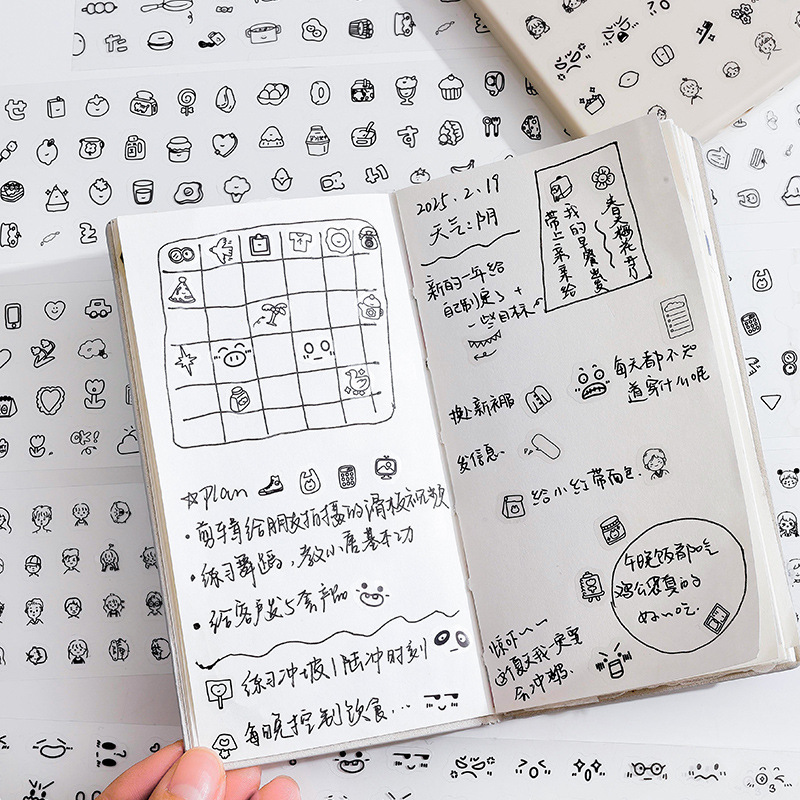 ☆plan
・剪辑给朋友拍摄的滑板视频
・练习舞蹈,教小唐基本功
・给客户发5套产品
练习冲坡|陆冲时刻
每晚控制饮食...
2025.2.19
天气:阴
新的一年给
自己制定了
一些目标
我的早餐要
带上菜菜给
每天都不知
道穿什么呢
换上新衣服
发信息.
给小红带面包.
午晚饭都吃
鸡公煲真的
好好吃.
惊吓~~
这个夏天我一定要
会冲浪.
OK!
た
せ
す